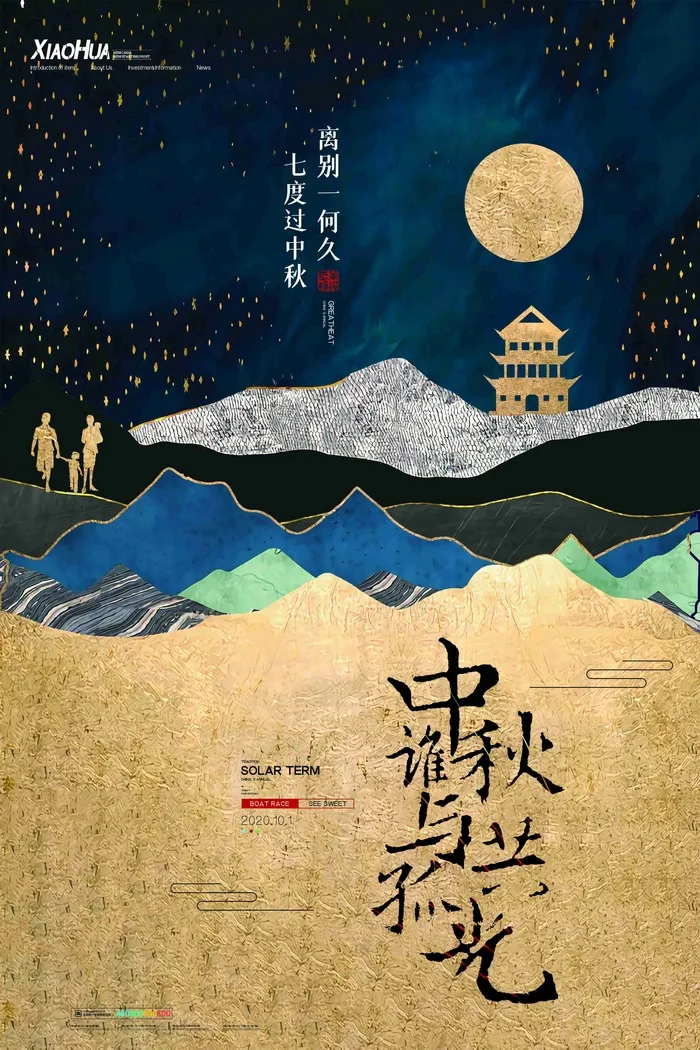 XIAOHUA
Introduction of items About Us Investment Information News
离别一何久
七度过中秋
GREATHEAT
中秋
谁与共
孤光
TRADITION
SOLAR TERM
BOAT RACE SEE SWEET
2020.10.1